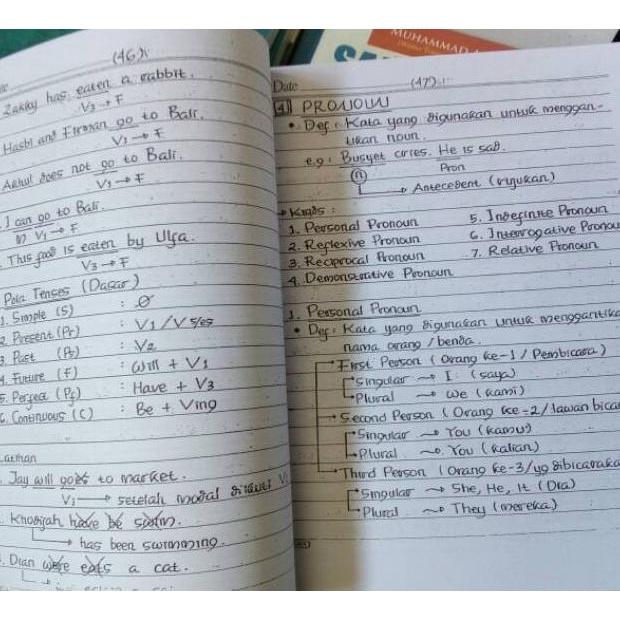 (46)
Zakky has eaten a rabbit.
V3 → F
Hasbi and Firman go to Bali.
V1 → F
Akhul does not go to Bali.
V1 → F
I can go to Bali.
V1 → F
This food is eaten by Ulfa.
V3 → F
Pola Tenses (Dasar)
1. Simple (S) : Ø
2. Present (Pr) : V1 / V s/es
3. Past (Pt) : V2
4. Future (F) : Will + V1
5. Perfect (Pf) : Have + V3
6. Continuous (C) : Be + Ving
Latihan
Jay will goes to market.
V1 → setelah modal diikuti V1
Khosiyah have be swim.
→ has been swimming.
Dian were eats a cat.
MUHAMMAD
Date
(47)
PRONOUN
• Def : Kata yang digunakan untuk menggan-
tikan noun.
e.g : Busyet cries. He is sad.
(n) Pron
→ Antecedent (rujukan)
→ Kinds :
1. Personal Pronoun 5. Indefinite Pronoun
2. Reflexive Pronoun 6. Interrogative Pronou
3. Reciprocal Pronoun 7. Relative Pronoun
4. Demonstrative Pronoun
1. Personal Pronoun
• Def : Kata yang digunakan untuk menggantika
nama orang / benda.
First Person (Orang ke-1 / Pembicara)
Singular → I (saya)
Plural → We (kami)
Second Person (Orang ke-2 / lawan bicar
Singular → You (kamu)
Plural → You (kalian)
Third Person (Orang ke-3/yg dibicaraka
Singular → She, He, It (Dia)
Plural → They (mereka)